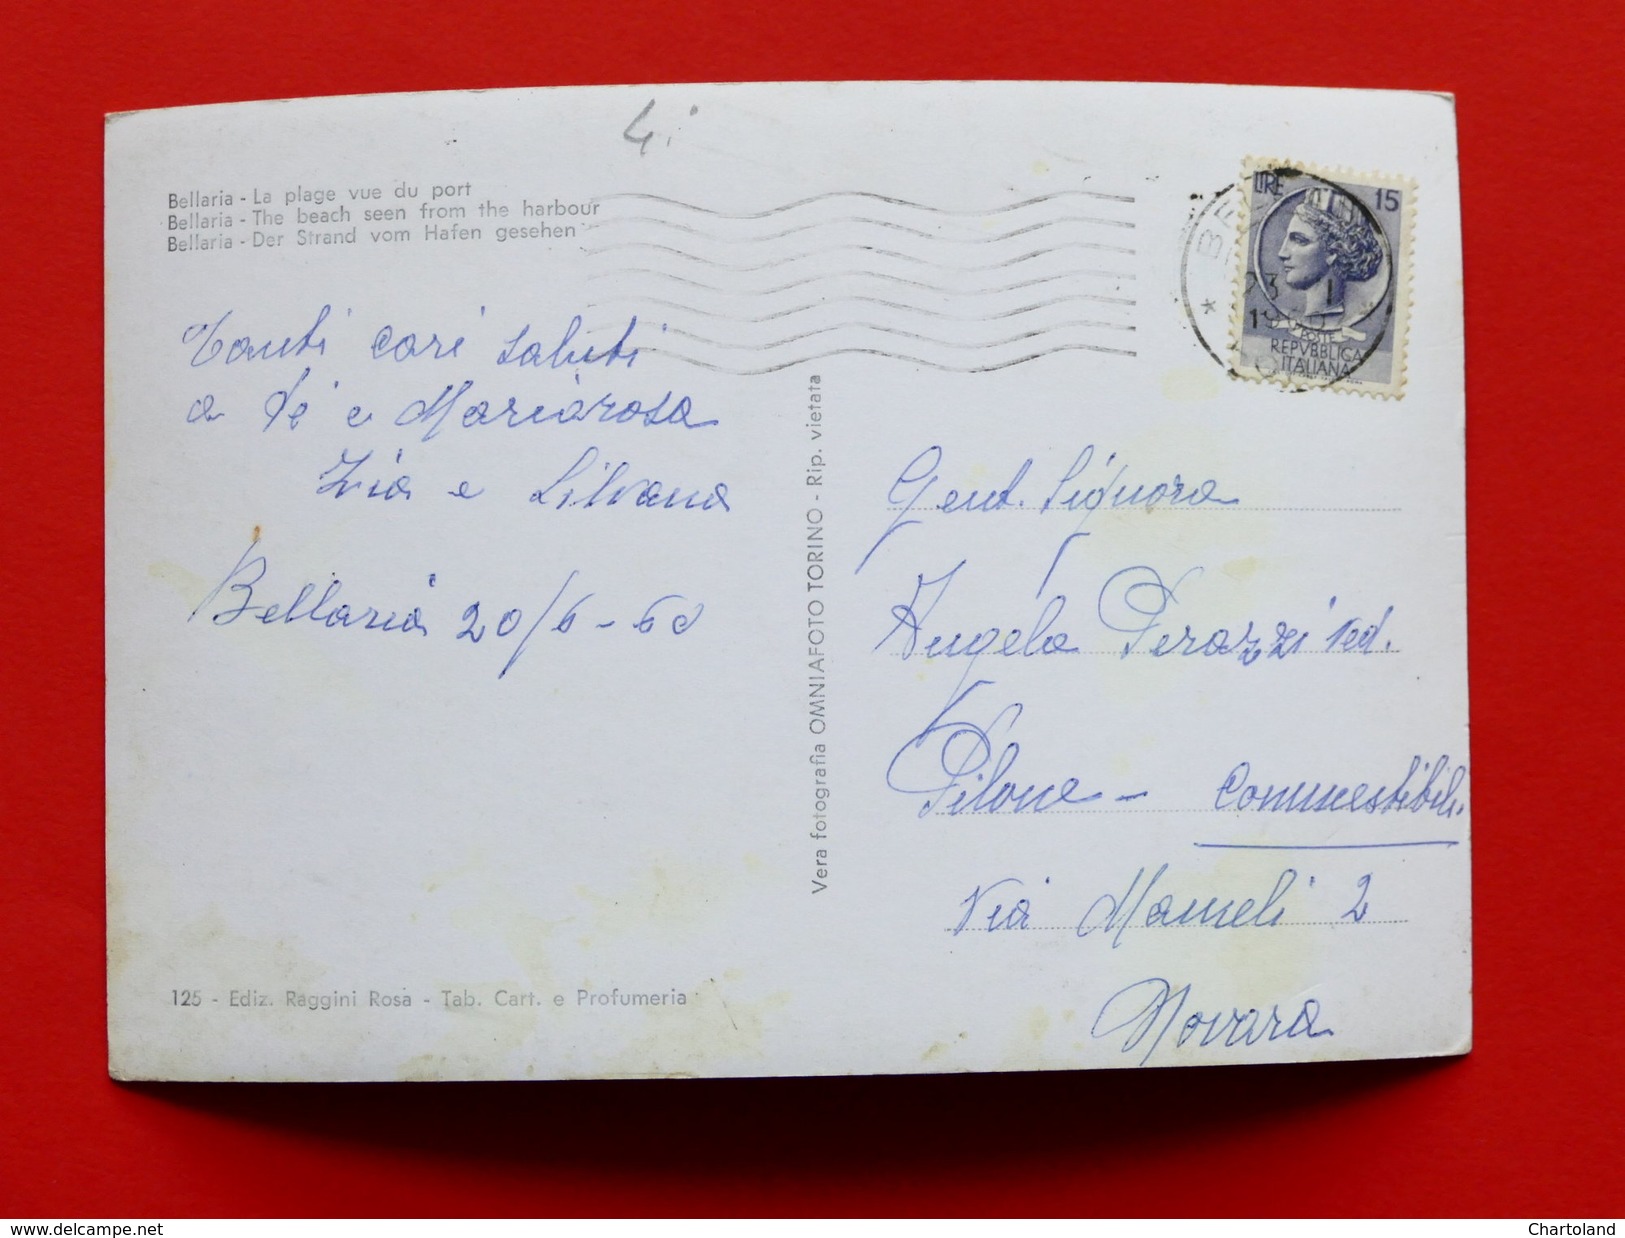 4
Bellaria - La plage vue du port
Bellaria - The beach seen from the harbour
Bellaria - Der Strand vom Hafen gesehen
LIRE 15
POSTE
REPVBBLICA
ITALIANA
1960
Tanti cari saluti
a Te e Mariarosa
Zia e Silvana
Bellaria 20/6-60
Vera fotografia OMNIAFOTO TORINO - Rip. vietata
Gent. Signora
Angela Perazzi ved.
Pilone - Commestibili
Via Mameli 2
Novara
125 - Ediz. Raggini Rosa - Tab. Cart. e Profumeria
www.delcampe.net
Chartoland